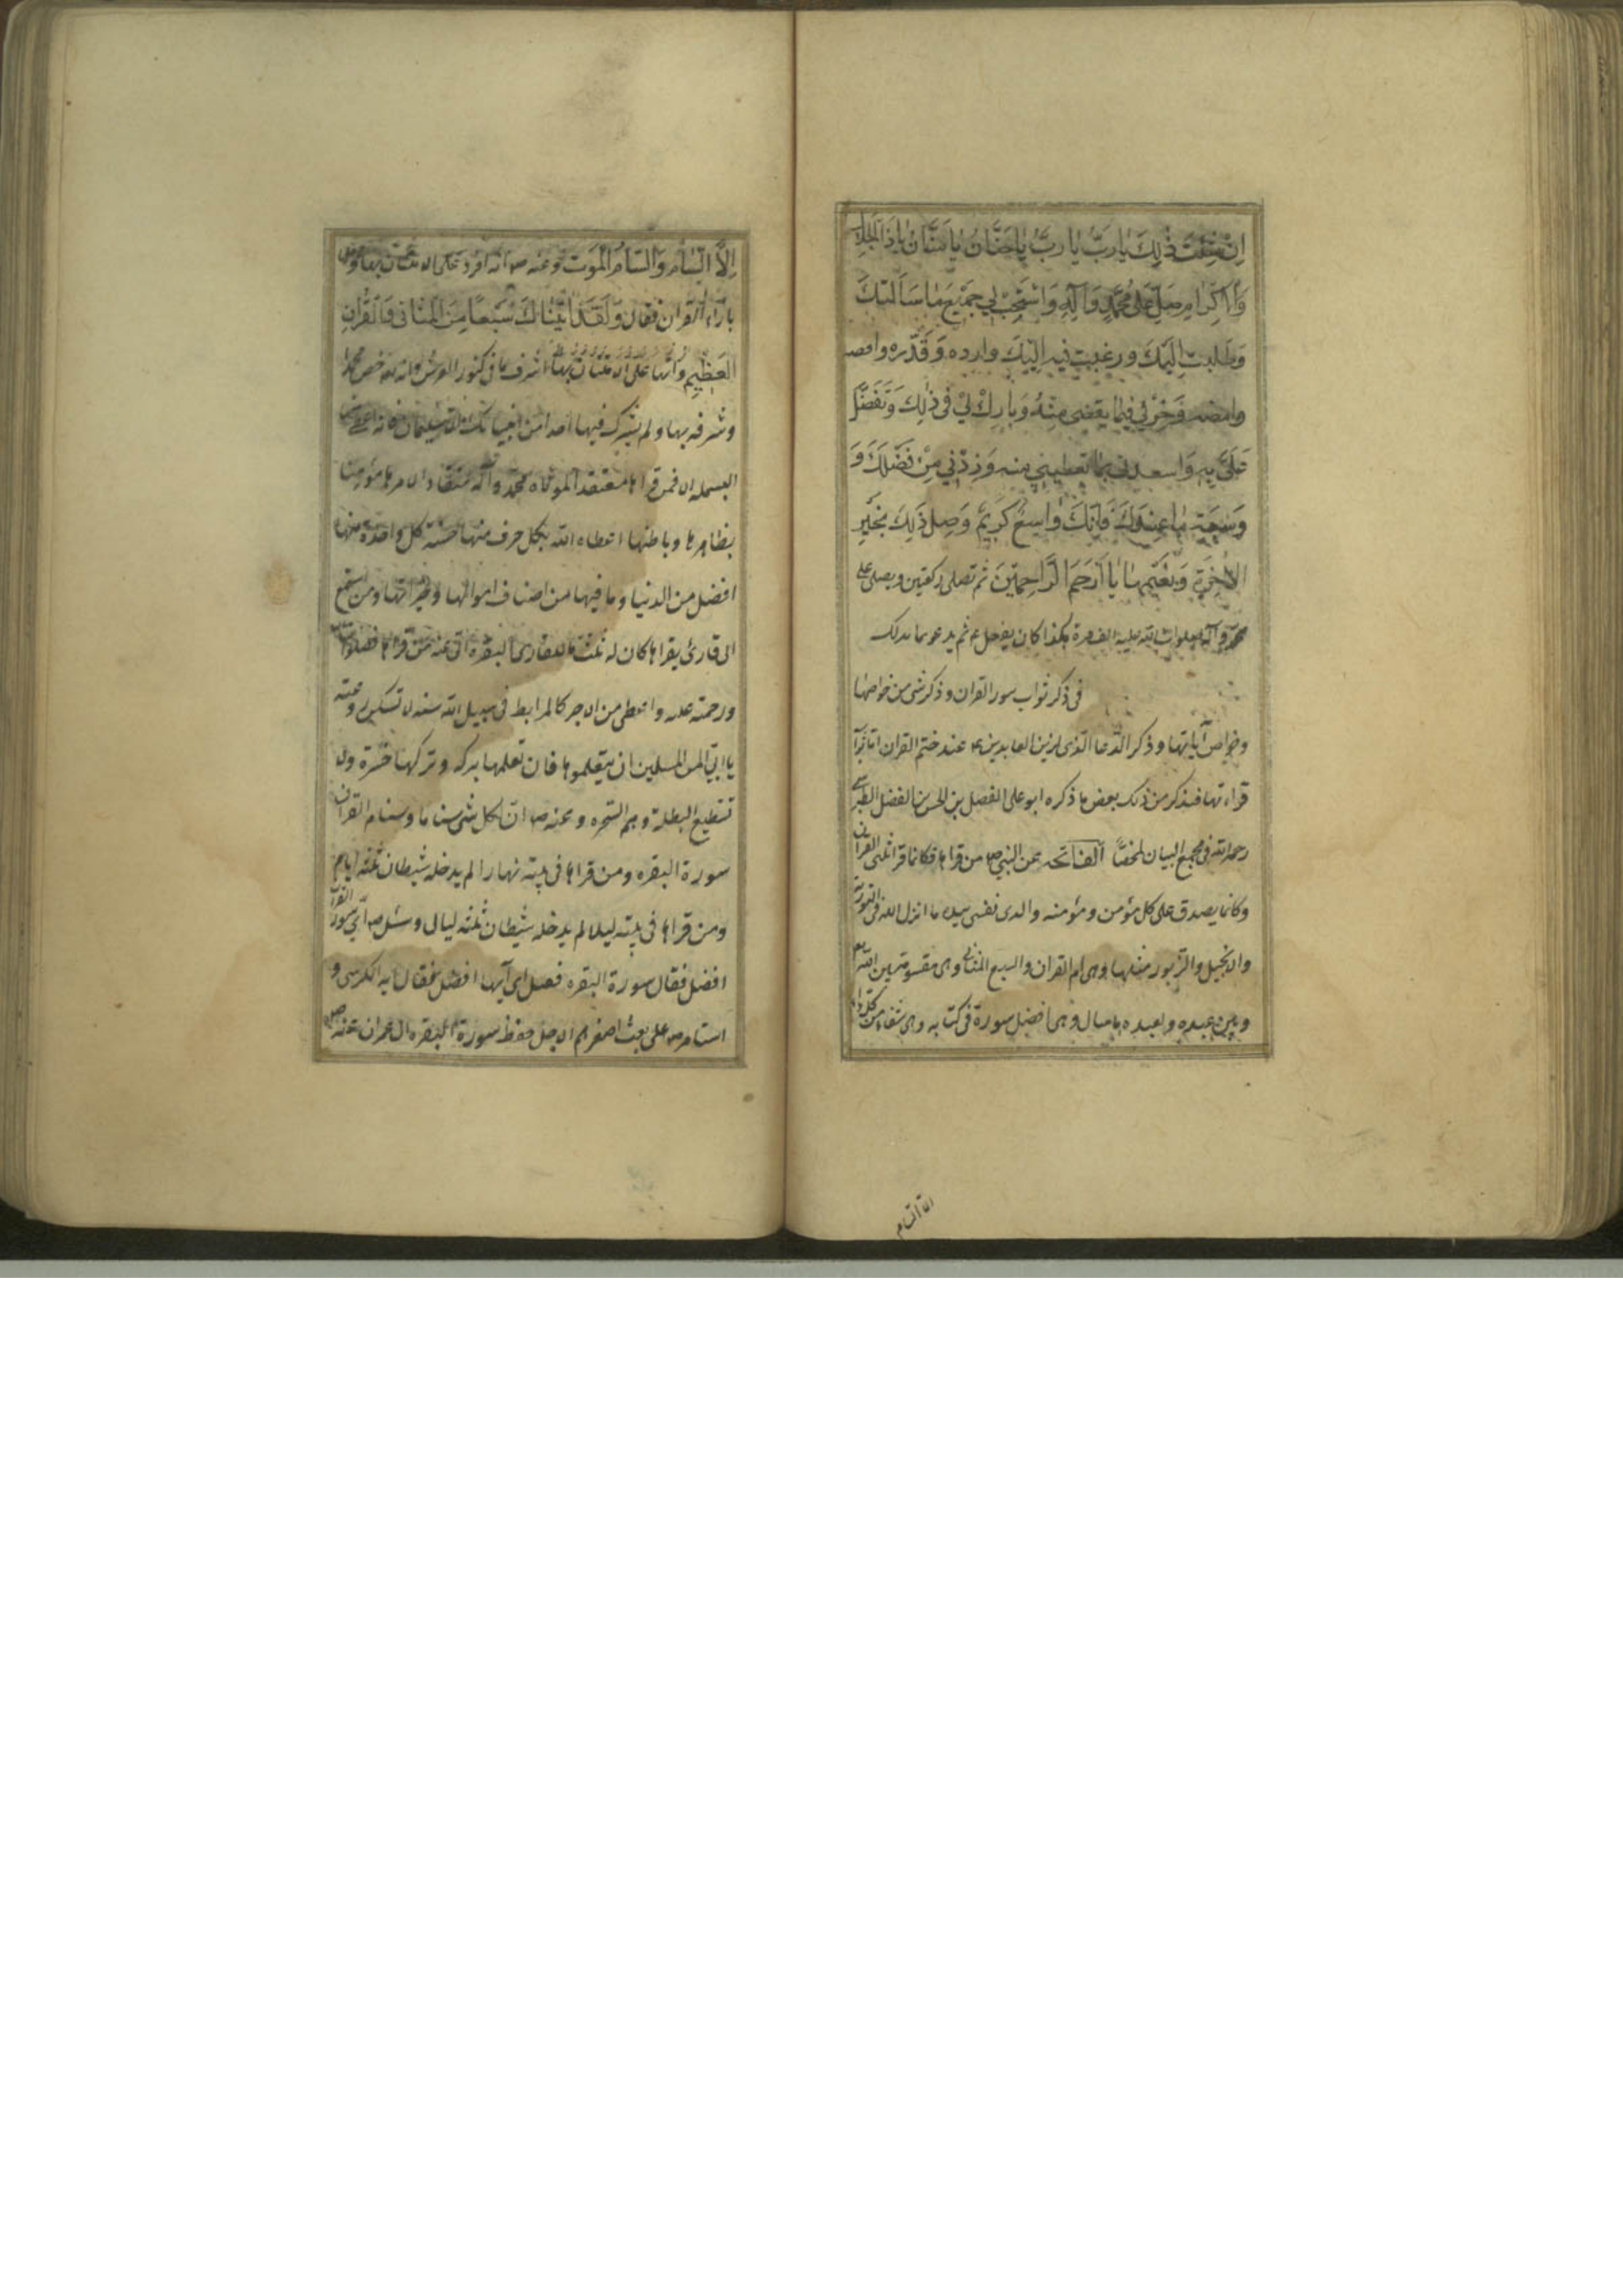 اِنْ شِئْتَ ذٰلِكَ يا رَبِّ يا رَبِّ يا حَنّانُ يا مَنّانُ يا ذَا الجَلالِ
وَالْاِكْرامِ صَلِّ عَلى مُحَمَّدٍ وَآلِهِ وَاسْتَجِبْ لي جَميعَ ما سَاَلتُكَ
وَطَلَبتُ اِلَيْكَ ورغبت فيه اِلَيْكَ وارده وَقَدِّره واقضه
وامضه وَخِرْ لي فيما تقضى مِنْهُ وَبارِكْ لي في ذٰلِكَ وَتَفَضَّل
عَلَيَّ بِهِ وَاسعدنى بما تعطينى منه وَزِدْني مِنْ فَضْلِكَ وَ
وَسَعَةِ ما عِنْدَكَ فَاِنَّكَ واسِعٌ كَريمٌ وَصِل ذٰلِكَ بخَيْرِ
الاٰخِرَةِ وَنَعيمِها يا اَرْحَمَ الرّاحِمينَ ثم تصلى ركعتين ويصلى على
محمد وآله صلوات الله عليه الف مرة هكذا كان يفعل ع ثم يدعو بما بدلك
فى ذكر ثواب سور القران وذكر شى من خواصها
وخواص آياتها وذكر الدعا الذى لزين العابدين ع عند ختم القران اما ثواب
قراءتها فنذكر من ذلك بعض ما ذكره ابو على الفضل بن الحسن بن الفضل الطبرسى
رحمه الله فى مجمع البيان ملخصا الفاتحه عن النبى ص من قراها فكانما قرا ثلثى القران
وكانما يصدق على كل مؤمن ومؤمنه والدى نفسى بيده ما انزل الله فى التورية
والانجيل والزبور مثلها وهى ام القران والسبع المثانى وهى مقسومة بين الله
وبين عبده ولعبده ما سال وهى افضل سورة فى كتابه وهى شفاء من كل داء
الا السام
اِلَّا السّامَ وَالسّامُ المَوْت وعنه ص انه افرد على الامتنان بها
بازاء القران فقال وَلَقَدْ اٰتَيْناكَ سَبْعًا مِنَ المَثانى وَالقُرْانَ
العَظيمَ وانها اشرف ما فى كنوز العرش وان الله خص محمدا
وشرفه بها ولم يشرك فيها احدا من انبيائه سليمان فانه اعطى
البسمله الا فمن قراها معتقدا لموالاة محمد وآله منقادا لامرها مؤمنا
بظاهرها وباطنها اعطاه الله بكل حرف منها حسنة كل واحدة منها
افضل من الدنيا وما فيها من اصناف اموالها وخيراتها ومن استمع
الى قارئ يقراها كان له ثلث ما للقارى البقرة عنه من قراها فصلوات الله
ورحمته عليه واعطى من الاجر كالمرابط فى سبيل الله سنه لا تسكن روعته
يا ابى مر المسلمين ان يتعلموها فان تعلمها بركه وتركها حسرة ولا
تستطيع البطلة وهم السحره وعنه ص ان لكل شى سناما وسنام القران
سورة البقره ومن قراها فى بيته نهارا لم يدخله شيطان ثلثه ايام
ومن قراها فى بيته ليلا لم يدخله شيطان ثلثه ليالى وسئل ص اى سور القران
افضل فقال سورة البقره فقيل اى آيها افضل فقال آيه الكرسى و
استامر ص على بعث اصغرهم الاجل حفظ سورة البقره ال عمران عنه ص